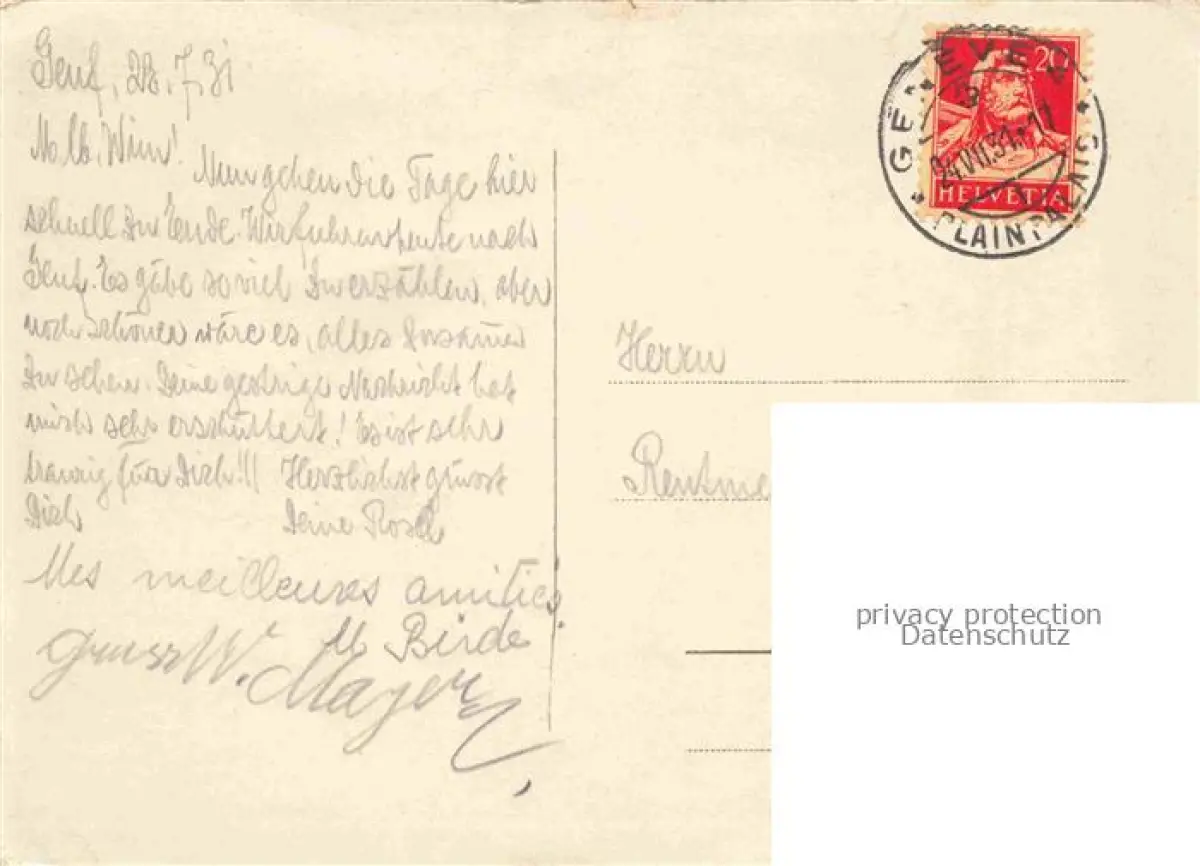 Genf, 28.7.31
M. lb. Wim!
Nun gehen die Tage hier
schnell zu Ende. Wir fuhren heute nach
Genf. Es gäbe so viel zu erzählen, aber
noch schöner wäre es, alles zusammen
zu sehen. Deine gestrige Nachricht hat
mich sehr erschüttert! Es ist sehr
traurig für Dich!!! Herzlichst grüsst
Dich Deine Rosel
Mes meilleures amitiés.
M Birde
Gruss W. Mayer
GENÈVE
20
24.VII.31
HELVETIA
PLAINPALAIS
Herrn
Rentme
privacy protection
Datenschutz